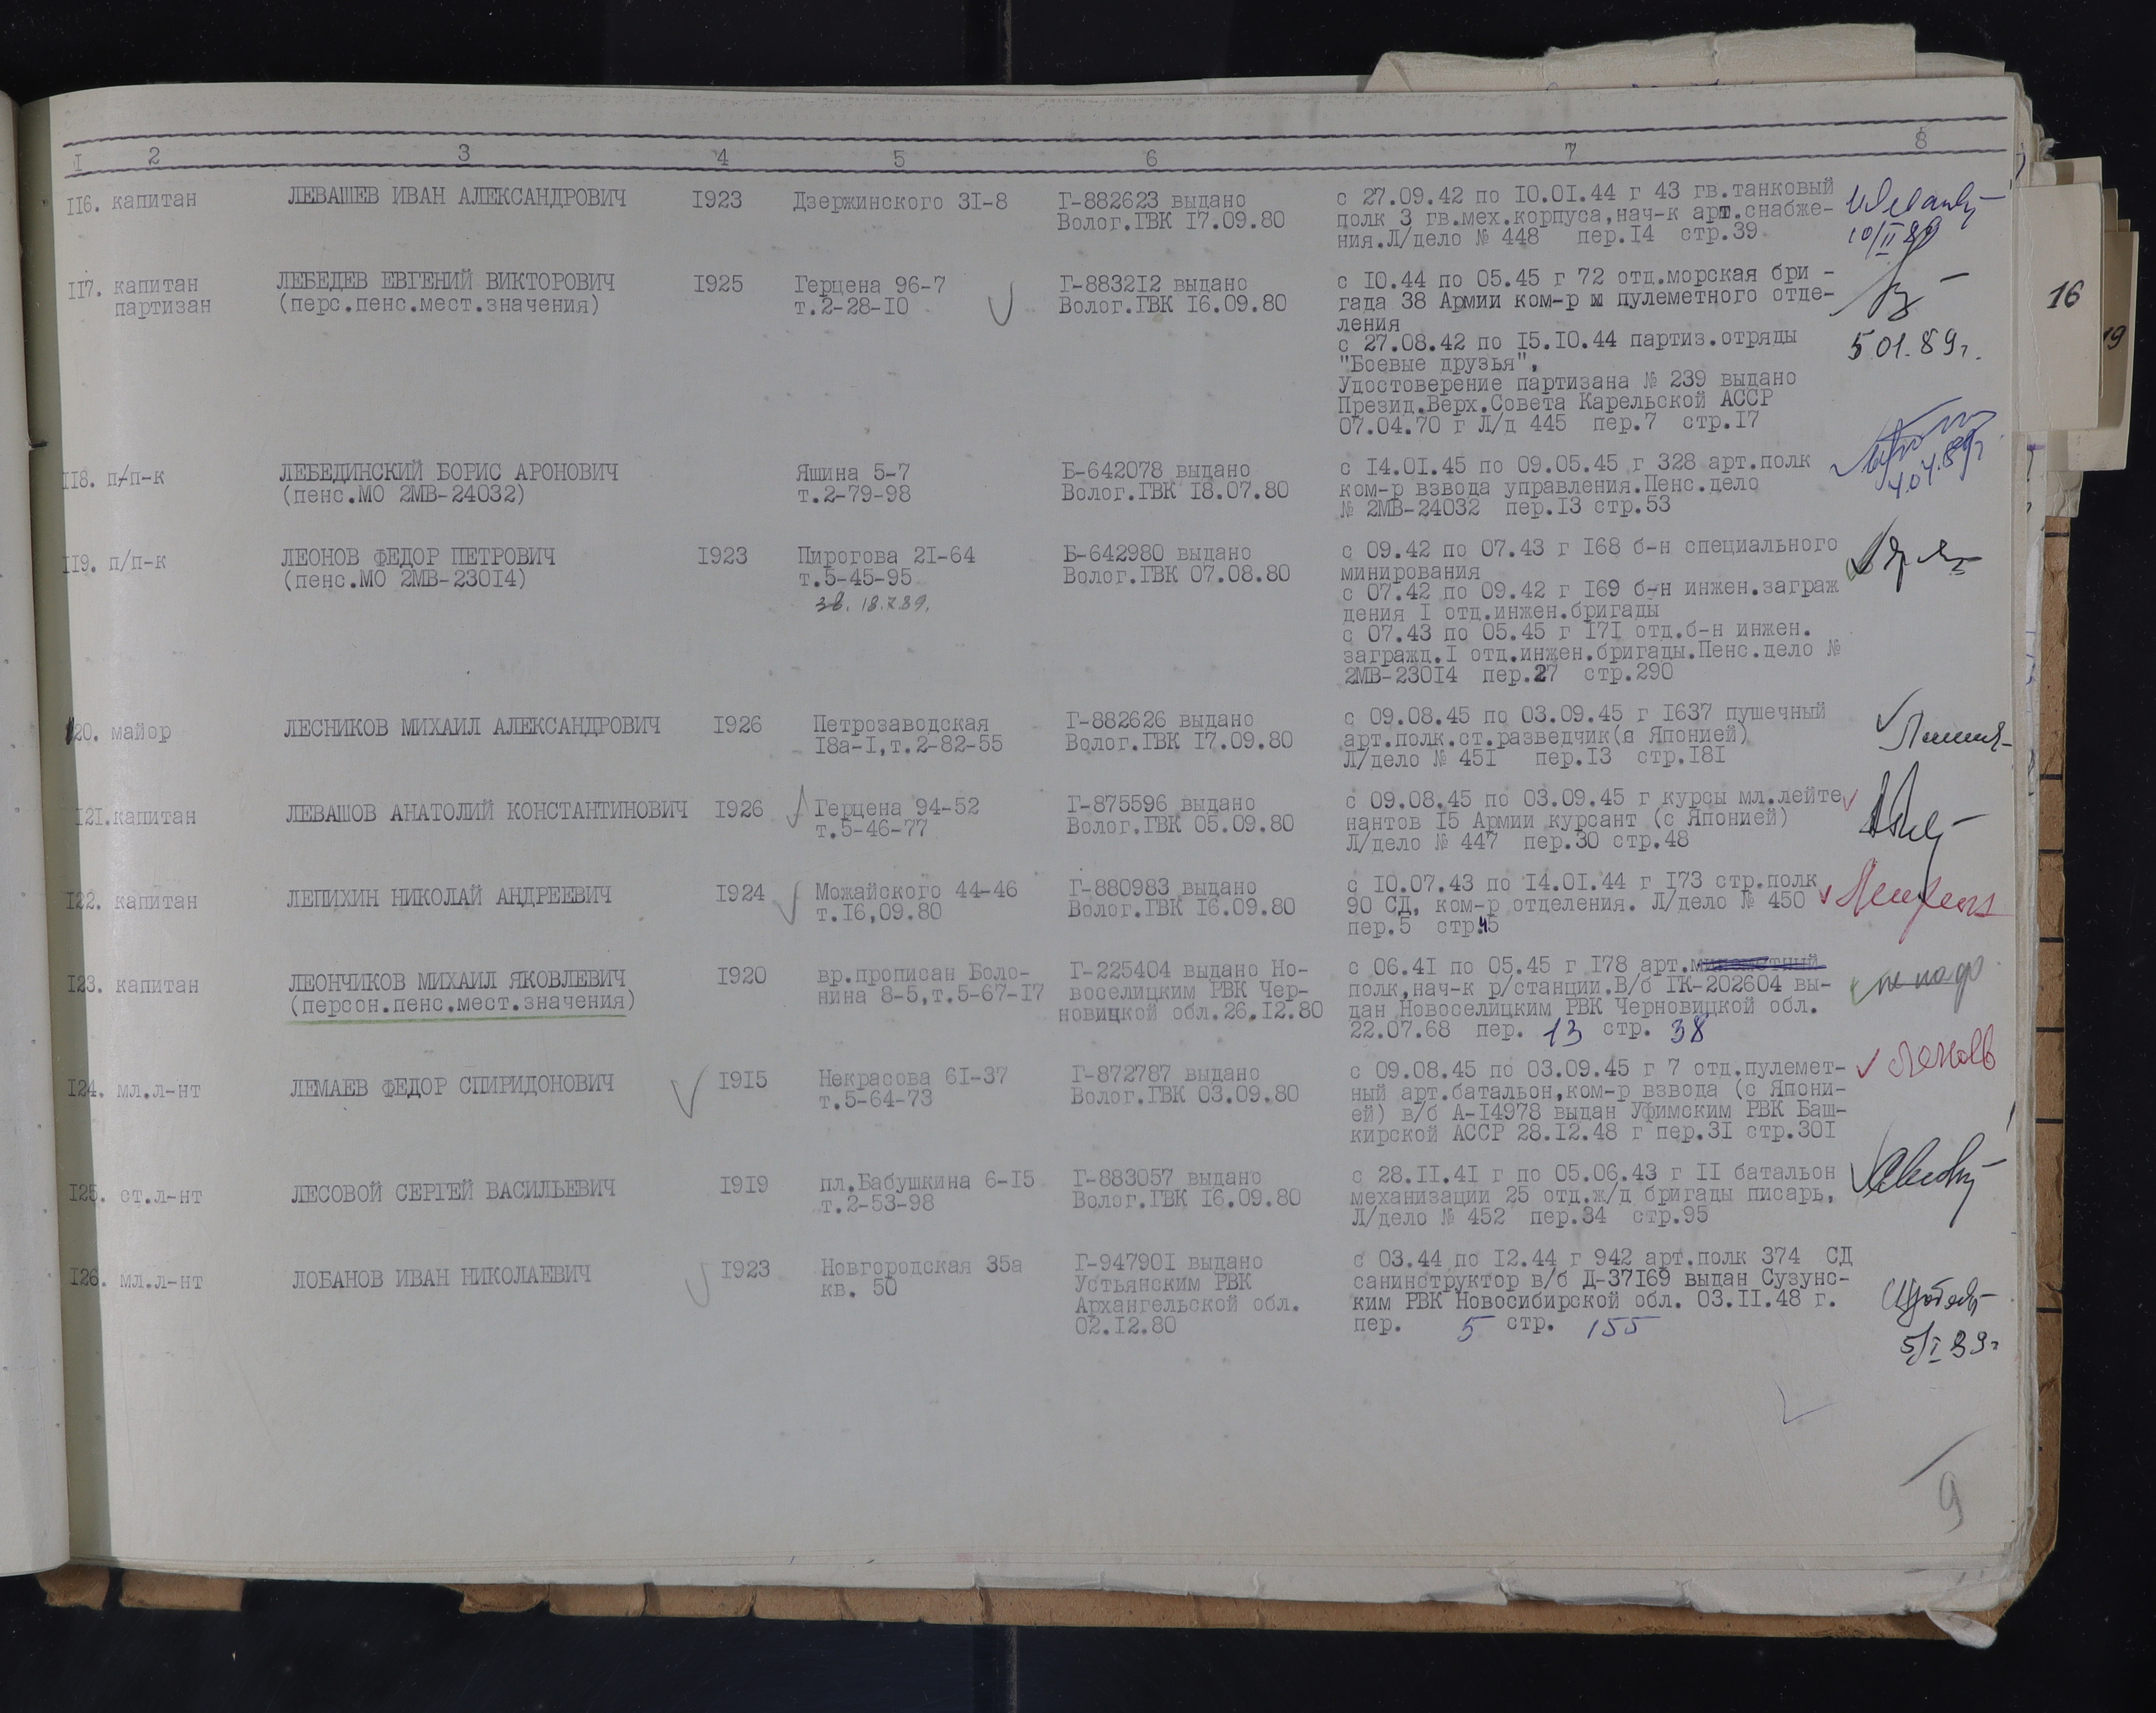 I 2 3 4 5 6 7 8
II6. капитан ЛЕВАШЕВ ИВАН АЛЕКСАНДРОВИЧ I923 Дзержинского 3I-8 Г-882623 выдано с 27.09.42 по I0.0I.44 г 43 гв.танковый
Волог.ГВК I7.09.80 полк 3 гв.мех.корпуса,нач-к арт.снабже-
ния.Л/дело № 448 пер.I4 стр.39
10/II 89
II7. капитан ЛЕБЕДЕВ ЕВГЕНИЙ ВИКТОРОВИЧ I925 Герцена 96-7 Г-8832I2 выдано с I0.44 по 05.45 г 72 отд.морская бри -
партизан (перс.пенс.мест.значения) т.2-28-I0 Волог.ГВК I6.09.80 гада 38 Армии ком-р м пулеметного отде-
ления
с 27.08.42 по I5.I0.44 партиз.отряды 5 01.89г.
"Боевые друзья",
Удостоверение партизана № 239 выдано
Презид.Верх.Совета Карельской АССР
07.04.70 г Л/д 445 пер.7 стр.I7
II8. п/п-к ЛЕБЕДИНСКИЙ БОРИС АРОНОВИЧ Яшина 5-7 Б-642078 выдано с I4.0I.45 по 09.05.45 г 328 арт.полк
(пенс.МО 2МВ-24032) т.2-79-98 Волог.ГВК I8.07.80 ком-р взвода управления.Пенс.дело
№ 2МВ-24032 пер.I3 стр.53
II9. п/п-к ЛЕОНОВ ФЕДОР ПЕТРОВИЧ I923 Пирогова 2I-64 Б-642980 выдано с 09.42 по 07.43 г I68 б-н специального
(пенс.МО 2МВ-230I4) т.5-45-95 Волог.ГВК 07.08.80 минирования
с 07.42 по 09.42 г I69 б-н инжен.заграж
дения I отд.инжен.бригады
с 07.43 по 05.45 г I7I отд.б-н инжен.
загражд.I отд.инжен.бригады.Пенс.дело №
2МВ-230I4 пер.27 стр.290
I20. майор ЛЕСНИКОВ МИХАИЛ АЛЕКСАНДРОВИЧ I926 Петрозаводская Г-882626 выдано с 09.08.45 по 03.09.45 г I637 пушечный
I8а-I,т.2-82-55 Волог.ГВК I7.09.80 арт.полк.ст.разведчик(я Японией)
Л/дело № 45I пер.I3 стр.I8I
I2I.капитан ЛЕВАШОВ АНАТОЛИЙ КОНСТАНТИНОВИЧ I926 Герцена 94-52 Г-875596 выдано с 09.08.45 по 03.09.45 г курсы мл.лейте
т.5-46-77 Волог.ГВК 05.09.80 нантов I5 Армии курсант (с Японией)
Л/дело № 447 пер.30 стр.48
I22. капитан ЛЕПИХИН НИКОЛАЙ АНДРЕЕВИЧ I924 Можайского 44-46 Г-880983 выдано с I0.07.43 по I4.0I.44 г I73 стр.полк
т.I6,09.80 Волог.ГВК I6.09.80 90 СД, ком-р отделения. Л/дело № 450
пер.5 стр.45
I23. капитан ЛЕОНЧИКОВ МИХАИЛ ЯКОВЛЕВИЧ I920 вр.прописан Боло- Г-225404 выдано Но- с 06.4I по 05.45 г I78 арт.минометный
(персон.пенс.мест.значения) нина 8-5,т.5-67-I7 воселицким РВК Чер- полк,нач-к р/станции.В/б ГК-202604 вы-
новицкой обл.26.I2.80 дан Новоселицким РВК Черновицкой обл.
22.07.68 пер. 13 стр. 38
I24. мл.л-нт ЛЕМАЕВ ФЕДОР СПИРИДОНОВИЧ I9I5 Некрасова 6I-37 Г-872787 выдано с 09.08.45 по 03.09.45 г 7 отд.пулемет-
т.5-64-73 Волог.ГВК 03.09.80 ный арт.батальон,ком-р взвода (с Япони-
ей) в/б А-I4978 выдан Уфимским РВК Баш-
кирской АССР 28.I2.48 г пер.3I стр.30I
I25. ст.л-нт ЛЕСОВОЙ СЕРГЕЙ ВАСИЛЬЕВИЧ I9I9 пл.Бабушкина 6-I5 Г-883057 выдано с 28.II.4I г по 05.06.43 г II батальон
т.2-53-98 Волог.ГВК I6.09.80 механизации 25 отд.ж/д бригады писарь,
Л/дело № 452 пер.34 стр.95
I26. мл.л-нт ЛОБАНОВ ИВАН НИКОЛАЕВИЧ I923 Новгородская 35а Г-94790I выдано с 03.44 по I2.44 г 942 арт.полк 374 СД
кв. 50 Устьянским РВК санинструктор в/б Д-37I69 выдан Сузунс-
Архангельской обл. ким РВК Новосибирской обл. 03.II.48 г.
02.I2.80 пер. 5 стр. 155
5/I 89г
9
16
19